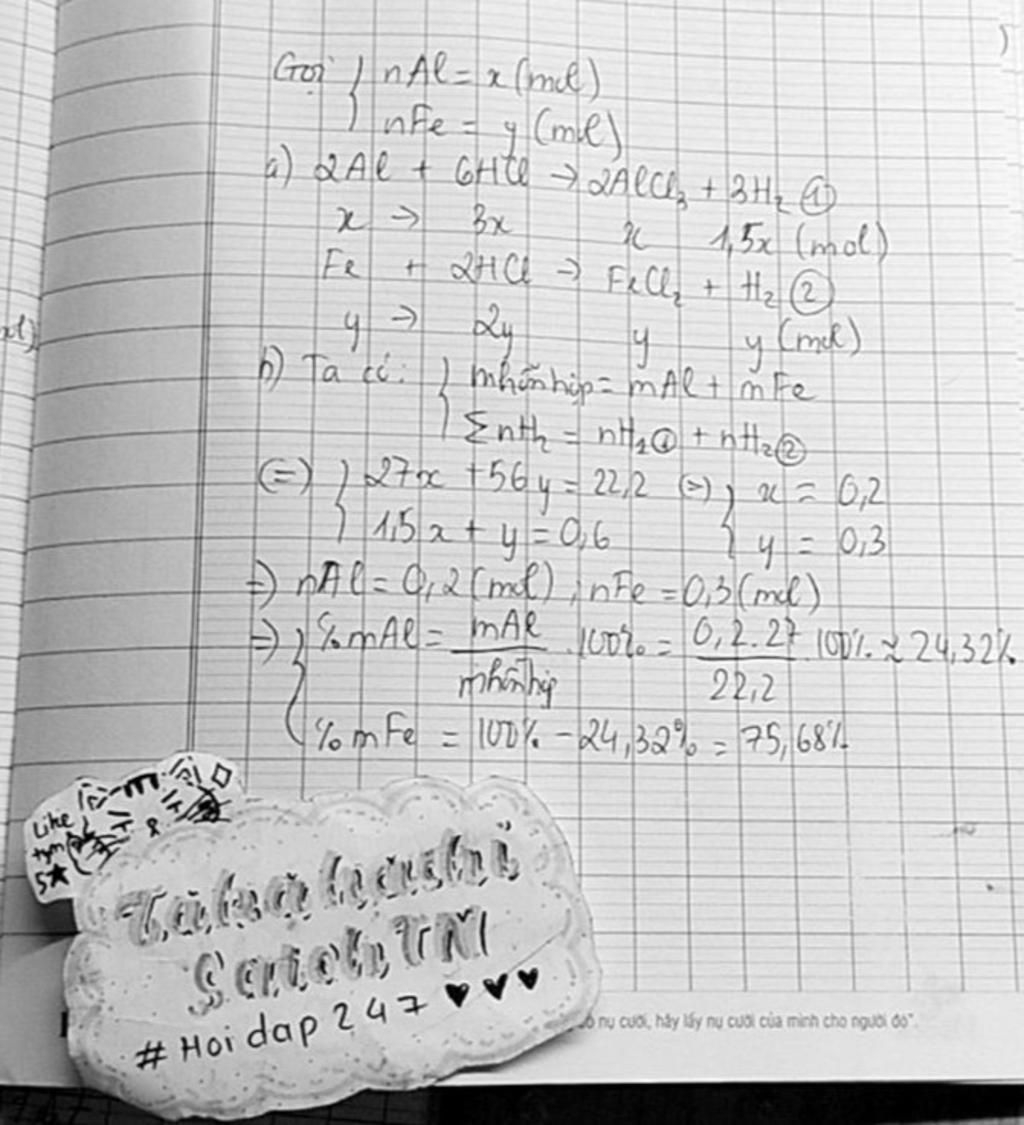 Gọi { nAl = x (mol)
nFe = y (mol)
a) 2Al + 6HCl → 2AlCl₃ + 3H₂ ①
x → 3x x 1,5x (mol)
Fe + 2HCl → FeCl₂ + H₂ ②
y → 2y y y (mol)
b) Ta có: { mhỗn hợp = mAl + mFe
∑nH₂ = nH₂① + nH₂②
(=) { 27x + 56y = 22,2 (=) { x = 0,2
1,5x + y = 0,6 y = 0,3
=) nAl = 0,2 (mol) ; nFe = 0,3 (mol)
=) { %mAl = mAl / mhỗn hợp . 100% = 0,2.27 / 22,2 . 100% ≈ 24,32%
%mFe = 100% - 24,32% = 75,68%
Like
tym
5★
#Hoidap247 ♥♥♥
nụ cười, hãy lấy nụ cười của mình cho người đó".